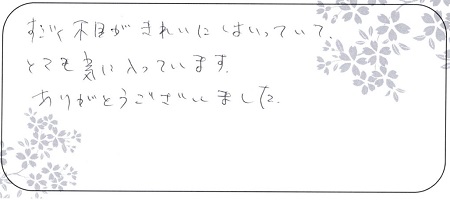 すごく木目がきれいにはいっていて、
とても気に入っています。
ありがとうございました。